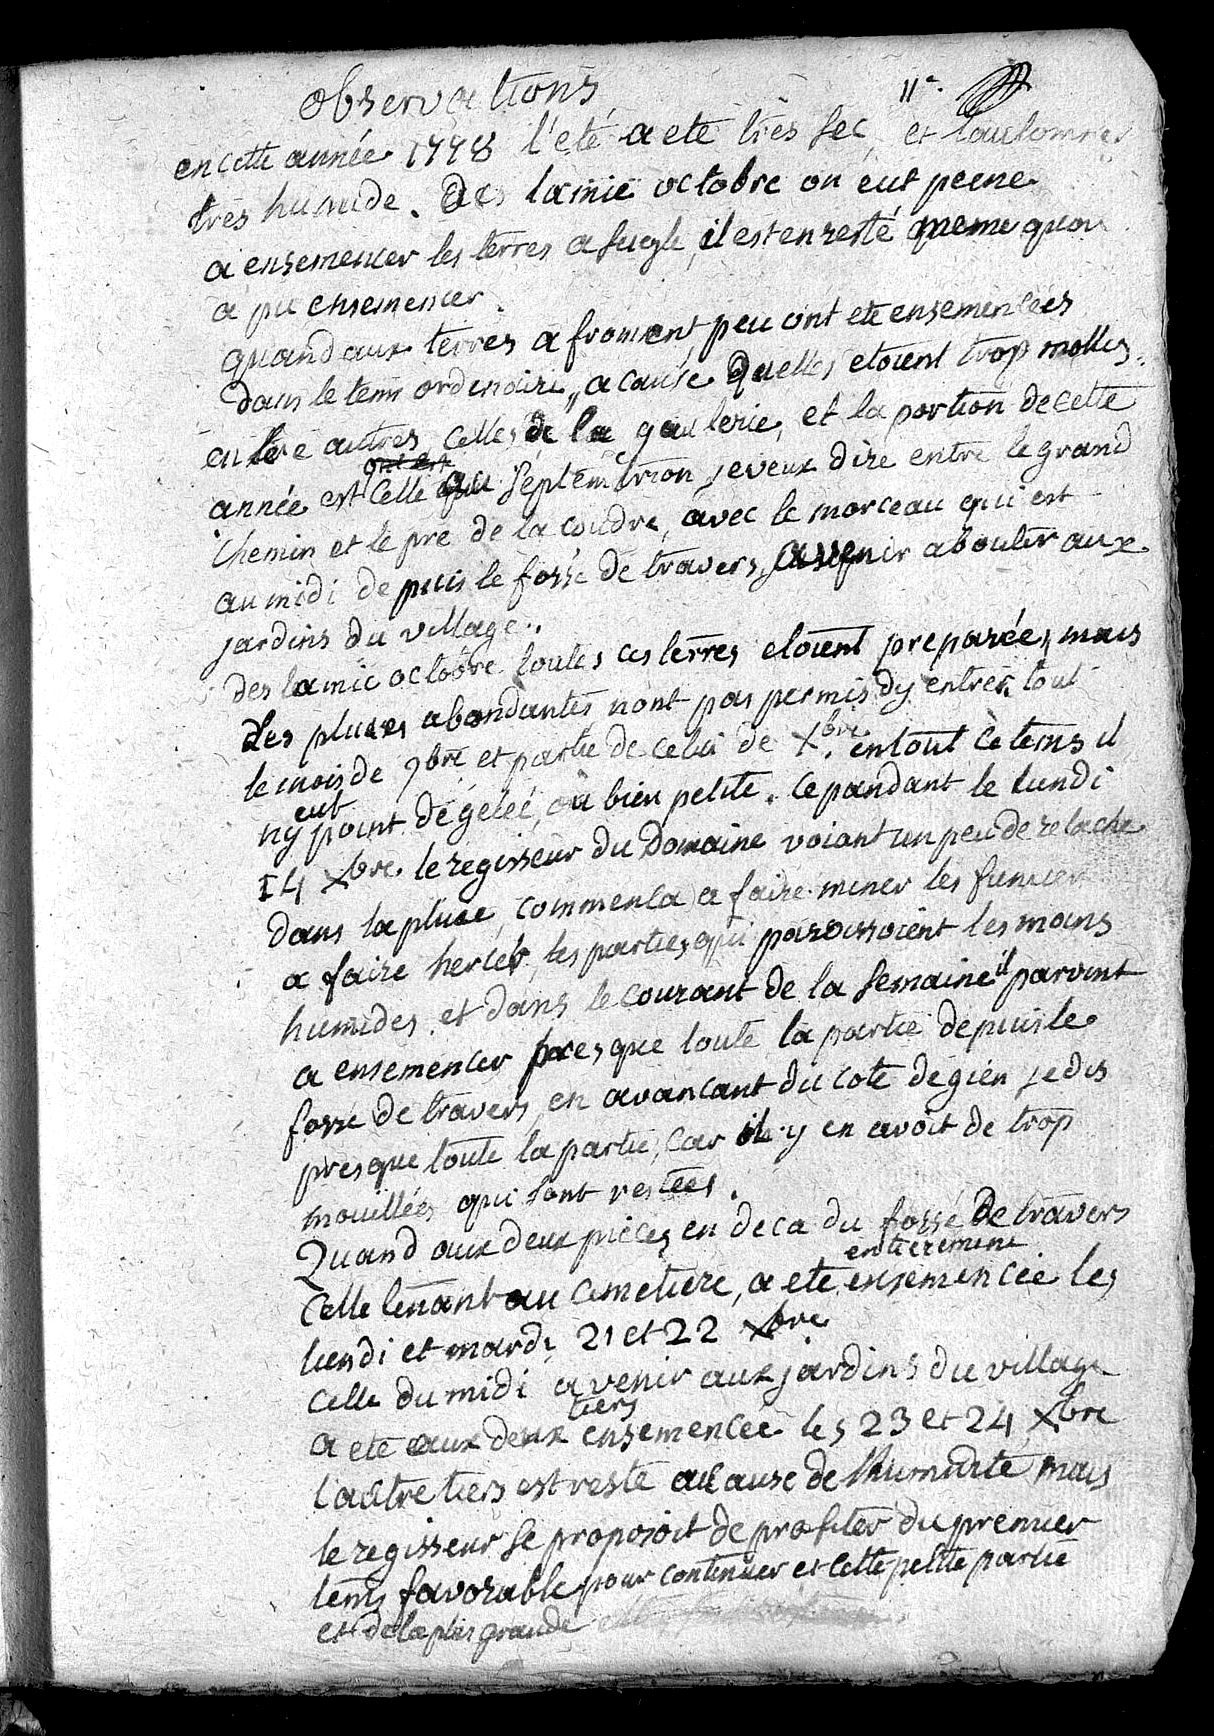 observations
11e.
en cette année 1778 l'eté a ete très sec, et lautomne
très humide. Des lamie octobre on eut peene
a ensemencer les terres a seigle, il est en resté meme quon
a pu ensemencer.
quand aux terres a froment, peu ont ete ensemencées
dans le tems ordenaire, a cause quelles etoient trop molles.
entre autres celles de la gaulerie, et la portion de cette
année est celle au Septemtrion, je veux dire entre le grand
Chemin et le pré de la coudre, avec le morceau qui est
au midi de puis le fossé de travers, a venir abouter aux
jardins du village..
des lamie octobre toutes ces terres etoient preparées, mais
des pluies abondantes nont pas permis dy entrer, tout
le mois de 9bre et partie de celui de Xbre. en tout ce tems il
ny eut point de gelée, ou bien petite. Cepandant le lundi
14 Xbre le regisseur du Domaine voiant un peu de relache
dans la pluie, commenca a faire mener les fumier
a faire hercer, les parties qui paroissoient les moins
humides, et dans le courant de la semaine il parvint
a ensemencer presque toute la partie depuis le
fossé de travers, en avancant du cote de gien, je dis
presque toute la partie, car il y en avoit de trop
mouillées qui sont restées.
Quand aux deux pieces en deca du fossé De travers
Celle tenant au Cimetiere, a ete entierement ensemencée les
lundi et mardi 21 et 22 Xbre
Celle du midi a venir aux jardins du village
a eté aux deux tiers ensemencee les 23 et 24 Xbre
l'autre tiers est resté a cause de l'humidité, mais
le regisseur se proposoit de profiter du premier
tems favorable pour continuer et cette petite partie
et de la plus grande